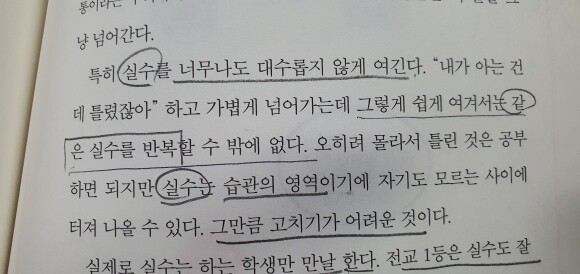 냥 넘어간다.
특히 실수를 너무나도 대수롭지 않게 여긴다. “내가 아는 건
데 틀렸잖아” 하고 가볍게 넘어가는데 그렇게 쉽게 여겨서는 같
은 실수를 반복할 수 밖에 없다. 오히려 몰라서 틀린 것은 공부
하면 되지만 실수는 습관의 영역이기에 자기도 모르는 사이에
터져 나올 수 있다. 그만큼 고치기가 어려운 것이다.
실제로 실수는 하는 학생만 만날 한다. 전교 1등은 실수도 잘